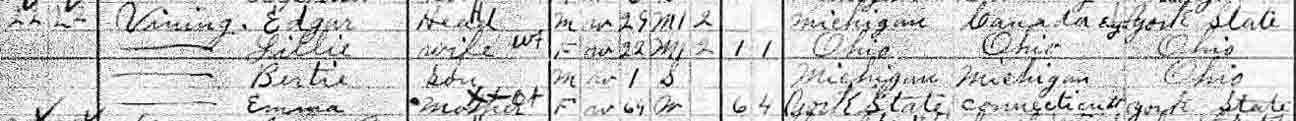 22 22 Vining. Edgar Head M W 29 M1 2 Michigan Canada Eng York State
Lillie Wife F W 22 M1 2 1 1 Ohio Ohio Ohio
Bertie Son M W 1 S Michigan Michigan Ohio
Emma Mother F W 64 W 6 4 York State Connecticutt York State